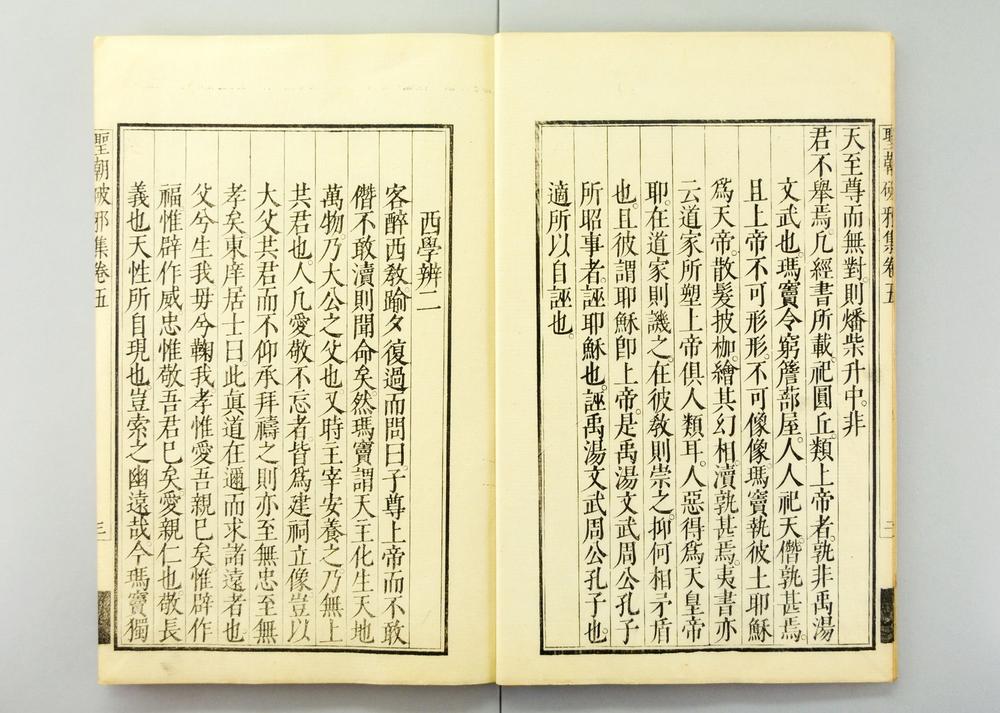 聖朝破邪集卷五
二
天至尊而無對。則燔柴升中。非
君不舉焉。凡經書所載祀圓丘。類上帝者。孰非禹湯
文武也。瑪竇令窮簷蔀屋。人人祀天。僭孰甚焉。
且上帝不可形形。不可像像。瑪竇執彼土耶穌
爲天帝。散髮披枷。繪其幻相。瀆孰甚焉。夷書亦
云道家所塑上帝俱人類耳。人惡得爲天皇帝
耶。在道家則譏之。在彼敎則崇之。抑何相矛盾
也。且彼謂耶穌卽上帝。是禹湯文武周公孔子
所昭事者。誣耶穌也。誣禹湯文武周公孔子也。
適所以自誣也。
西學辨二
客醉西敎踰夕復過而問曰子尊上帝而不敢
僭不敢瀆則聞命矣然瑪竇謂天主化生天地
萬物乃大公之父也又時主宰安養之乃無上
共君也。人凡愛敬不忘者皆爲建祠立像豈以
大父共君而不仰承拜禱之則亦至無忠至無
孝矣東庠居士曰此眞道在邇而求諸遠者也
父兮生我毋兮鞠我孝惟愛吾親巳矣惟辟作
福惟辟作威忠惟敬吾君巳矣愛親仁也敬長
義也天性所自現也豈索之幽遠哉今瑪竇獨
聖朝破邪集卷五
三